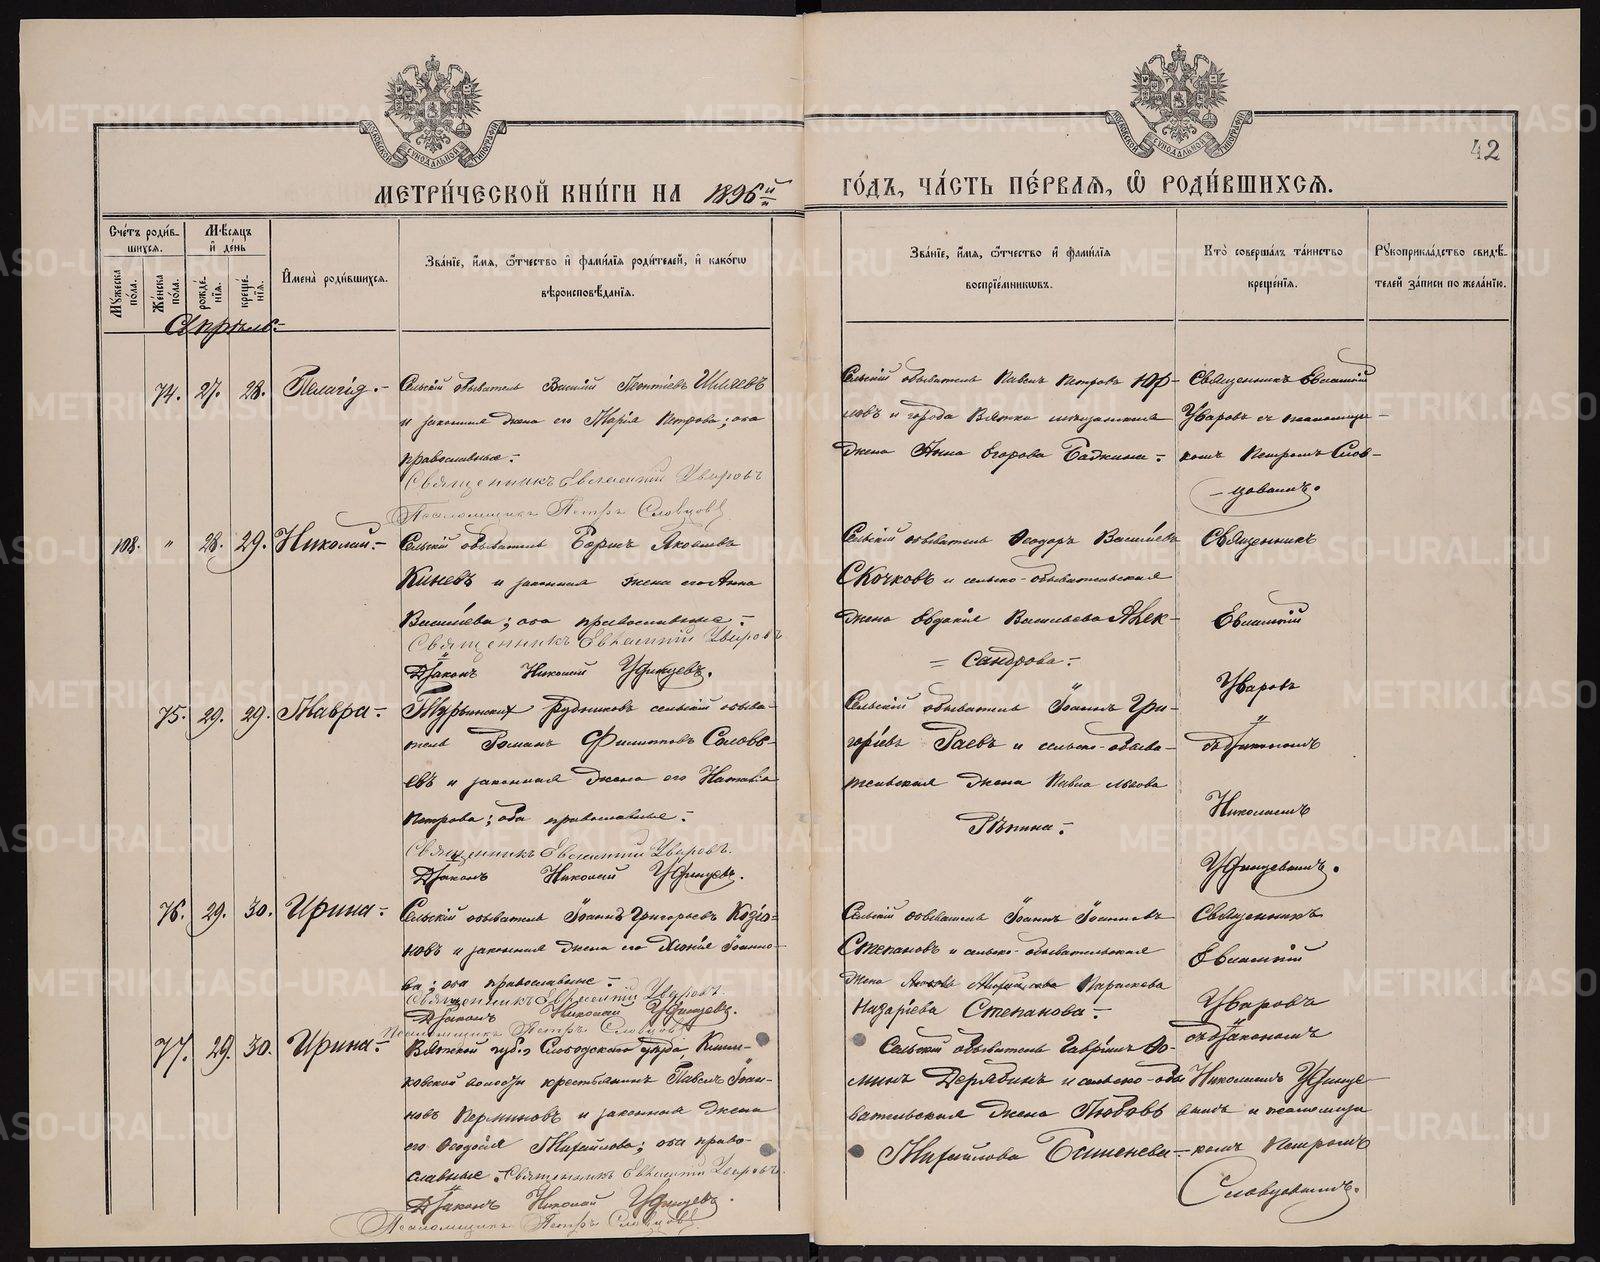 42
МЕТРИ́ЧЕСКОЙ КНИ́ГИ НА 1896й
ГО́ДЪ, ЧА́СТЬ ПЕ́РВАЯ, Ѡ҆ РОДИ́ВШИХСЯ.
Сче́тъ роди́в-
шихся.
Мѣ́сяцъ
и҆ де́нь
Мꙋ́жеска по́ла.
Же́нска по́ла.
рожде́-нїя.
креще́-нїя.
И҆мена̀ роди́вшихся.
Зва́нїе, и҆́мя, ѻ҆́тчество и҆ фами́лїя роди́телей, и҆ како́гѡ
вѣроисповѣ́данїя.
Зва́нїе, и҆́мя, ѻ҆́тчество и҆ фами́лїя
воспрїе́мникѡвъ.
Кто̀ соверша́лъ та́инство
креще́нїя.
Рꙋкоприкла́дство свидѣ́-
телей за́писи по жела́нїю.
Апрѣль.-
74. 27. 28. Пелагія.-
Сельскій обыватель Василій Леонтіевъ Шиляевъ
и законная жена его Марія Петрова; оба
православные.-
Священникъ Евлампій Уваровъ
Псаломщикъ Петръ Словцовъ
Сельскій обыватель Павелъ Петровъ Юр-
ловъ и города Вятки мѣщанская
жена Анна Егорова Бадкина.-
Священникъ Евлампій
Уваровъ съ псаломщи-
комъ Петромъ Слов-
-цовымъ.
108. " 28. 29. Николай.-
Сельскій обыватель Борисъ Яковлевъ
Киневъ и законная жена его Анна
Василіева; оба православные.-
Священникъ Евлампій Уваровъ
Діаконъ Николай Удинцевъ.
Сельскій обыватель Ѳеодоръ Василіевъ
Скочковъ и сельско-обывательская
жена Евдокія Васильева Алек-
= сандрова.-
Священникъ
Евлампій
Уваровъ
съ Діакономъ
Николаемъ
Удинцевымъ.
75. 29. 29. Мавра.-
Турьинскихъ рудниковъ сельскій обыва-
тель Романъ Филипповъ Соловь-
евъ и законная жена его Наталія
Петрова; оба православные.-
Священникъ Евлампій Уваровъ.
Діаконъ Николай Удинцевъ.
Сельскій обыватель Іоаннъ Гри-
горіевъ Раевъ и сельско-обыва-
тельская жена Павла Львова
Рѣпина.-
76. 29. 30. Ирина.-
Сельскій обыватель Іоаннъ Григорьевъ Козіо-
новъ и законная жена его Хіонія Іоанно-
ва; оба православные.-
Священникъ Евлампій Уваровъ.
Діаконъ Николай Удинцевъ.
Псаломщикъ Петръ Словцовъ
Сельскій обыватель Іоаннъ Іоанновъ
Степановъ и сельско-обывательская
жена Параскева
Назаріева Степанова.-
Священникъ
Евлампій
Уваровъ
съ Діакономъ
Николаемъ Удинце-
вымъ и псаломщи-
комъ Петромъ
Словцовымъ.
77. 29. 30. Ирина.-
Вятской губ. Слободскаго уѣзда, Клим-
ковской волости крестьянинъ Павелъ Іоан-
новъ Перминовъ и законная жена
его Ѳеодосія Михаилова; оба право-
славные. Священникъ Евлампій Уваровъ.
Діаконъ Николай Удинцевъ.
Псаломщикъ Петръ Словцовъ
Сельскій обыватель Гавріилъ Ѳо-
минъ Дерябинъ и сельско-обы-
вательская жена Любовь
Михаилова Бишенева.-
METRIKI.GASO-URAL.RU